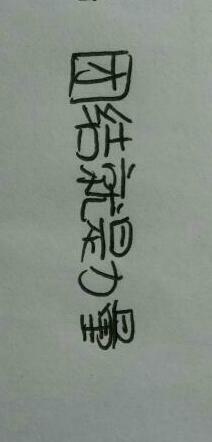 团结就是力量